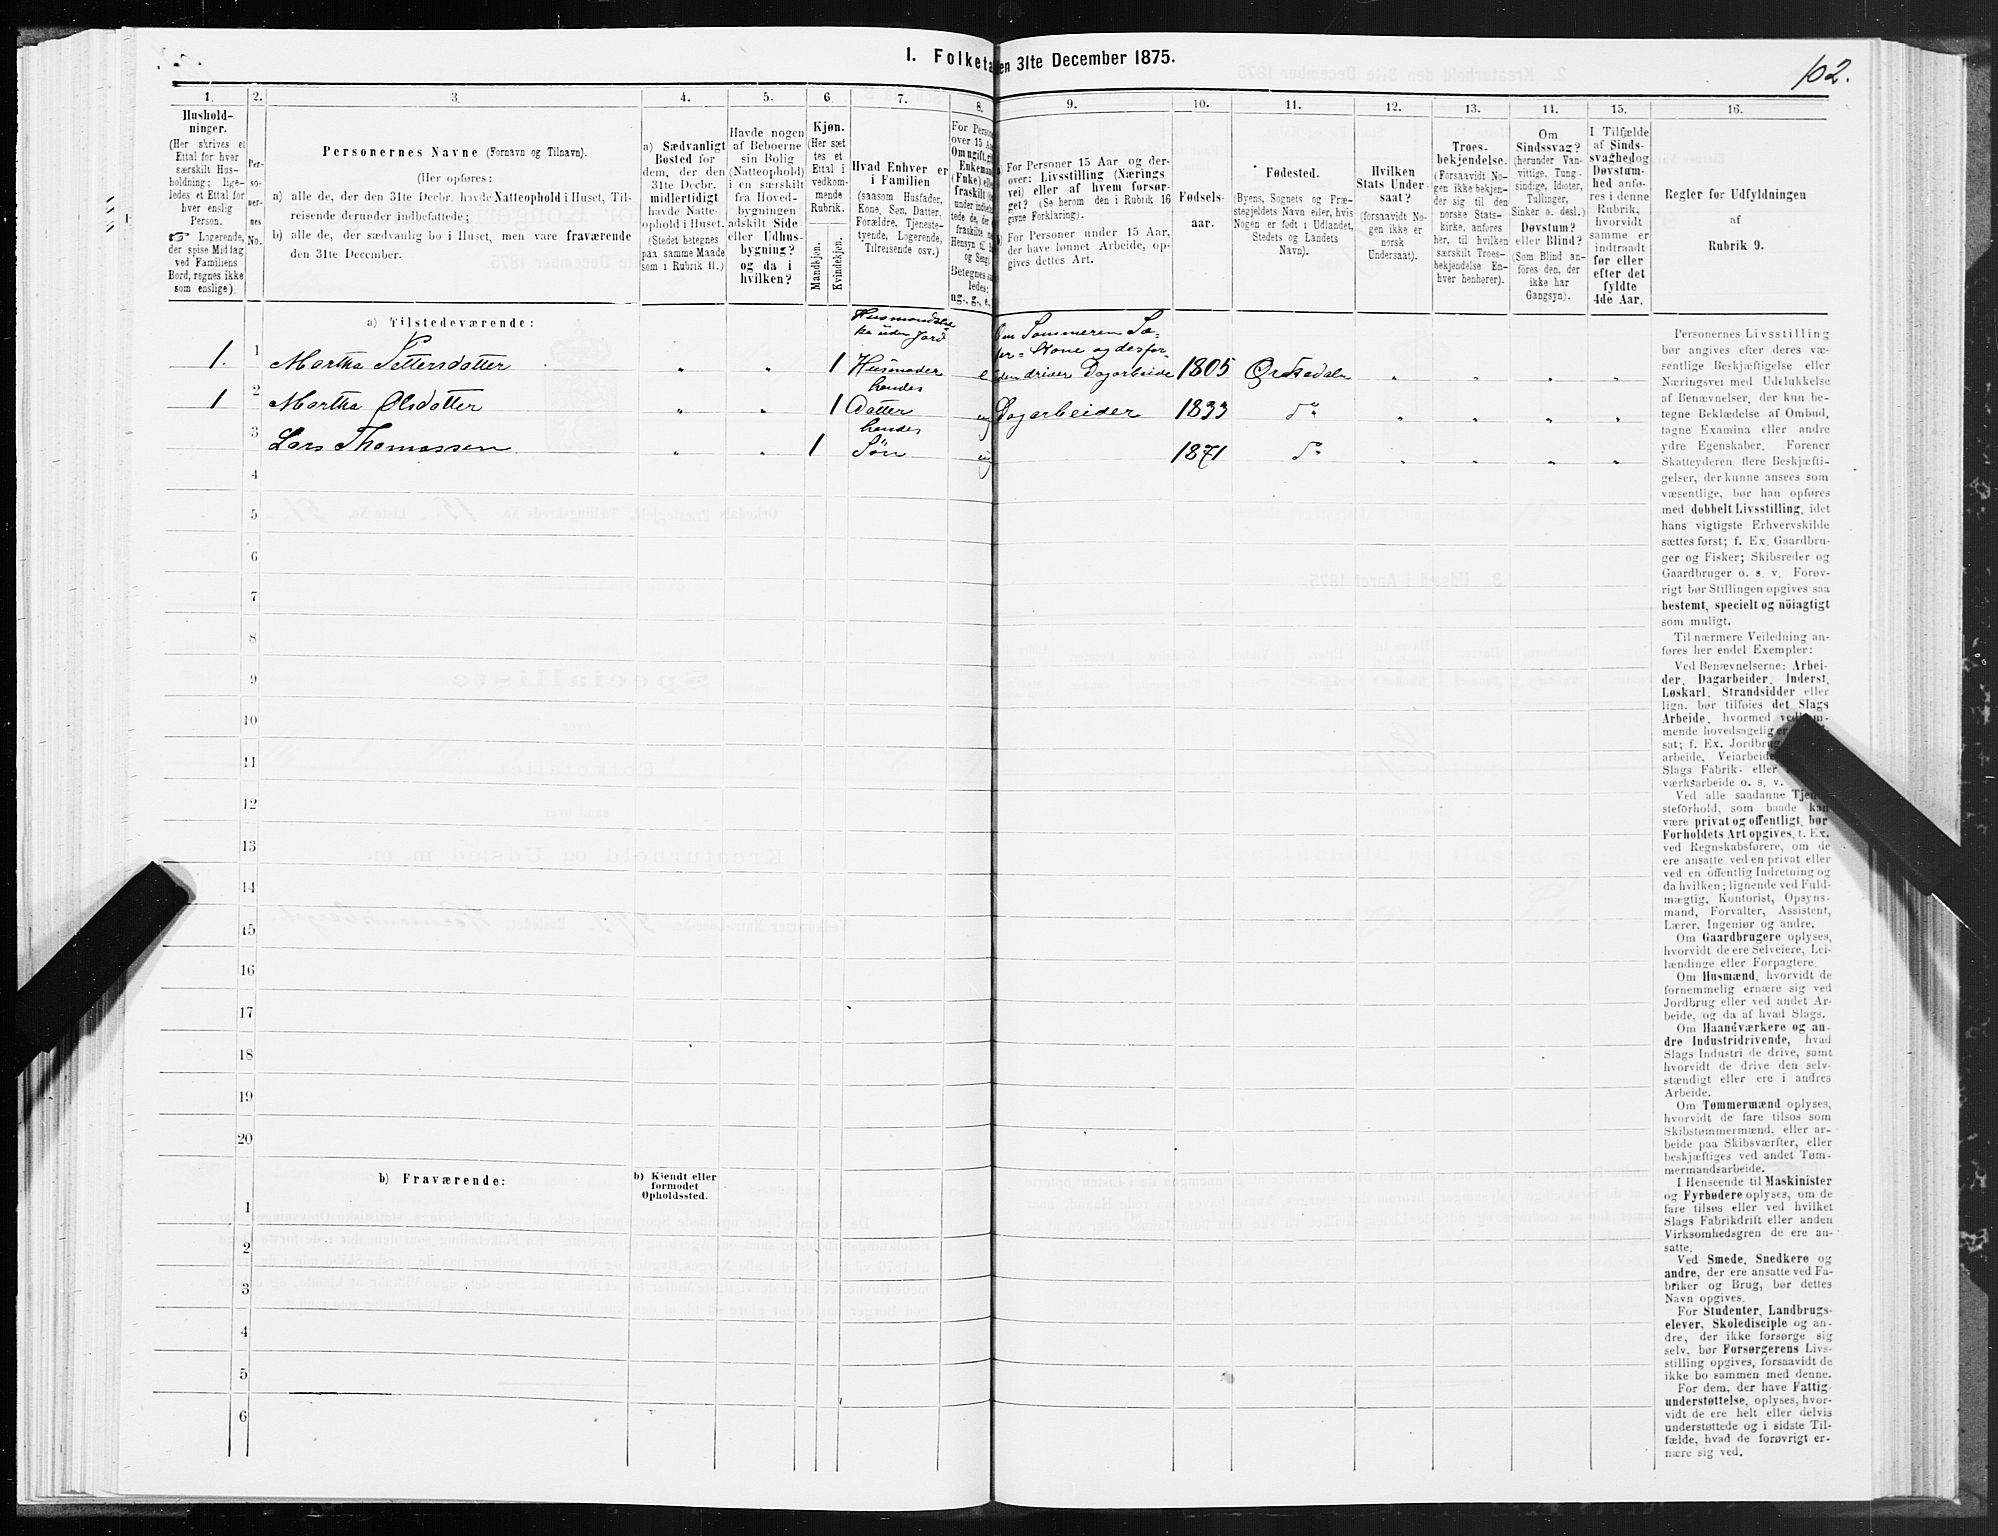 1. Folketa en 31te December 1875.
102.
1.
Hushold-
ninger.
(Her skrives et
Ettal for hver
særskilt Hus-
holdning; lige-
ledes et Ettal for
hver enslig
Person.
☞ Logerende,
der spise Middag
ved Familiens
Bord, regnes ikke
som enslige).
2.
Per-
so-
ner-
nes
No.
3.
Personernes Navne (Fornavn og Tilnavn).
(Her opføres:
a) alle de, der den 31te Decbr. havde Natteophold i Huset, Til-
reisende derunder indbefattede;
b) alle de, der sædvanlig bo i Huset, men vare fraværende
den 31te December.
4.
a) Sædvanligt
Bosted for
dem, der den
31te Decbr.
midlertidigt
havde Natte-
ophold i Huset.
(Stedet betegnes
paa samme Maade
som i Rubrik 11.)
5.
Havde nogen
af Beboerne
sin Bolig
(Natteophold)
i en særskilt
fra Hoved-
bygningen
adskilt Side-
eller Udhus-
bygning?
og da i
hvilken?
6.
Kjøn.
(Her sæt-
tes et
Ettal i
vedkom-
mende
Rubrik.
Mandkjøn.
Kvindekjøn.
7.
Hvad Enhver er
i Familien
(saasom Husfader,
Kone, Søn, Datter,
Forældre, Tjeneste-
tyende, Logerende,
Tilreisende osv.)
8.
For Person
over 15 Aar
Om ugift, g
Enkemand
(Enke) elle
fraskilt
Betegnes saa
ledes:
ug., g., e.,
9.
a) For Personer 15 Aar og der-
over: Livsstilling (Nærings
vei) eller af hvem forsør-
get? (Se herom den i Rubrik 16
givne Forklaring).
b) For Personer under 15 Aar,
der have lønnet Arbeide, op-
gives dettes Art.
10.
Fødsels-
aar.
11.
Fødested.
(Byens, Sognets og Præ-
stegjeldets Navn eller, hvis
Nogen er født i Udlandet,
Stedets og Landets
Navn).
12.
Hvilken
Stats Under-
saat?
(forsaavidt No-
gen ikke er
norsk
Undersaat).
13.
Troes-
bekjendelse.
(Forsaavidt No-
gen ikke bekjen-
der sig til den
norske Stats-
kirke, anføres
her, til hvilken
særskilt Troes-
bekjendelse En-
hver henhører).
14.
Om
Sindssvag?
(herunder Van-
vittige, Tung-
sindige, Idioter,
Tullinger,
Sinker o. desl.)
Døvstum?
eller Blind?
(Som Blind an-
føres den, der
ikke har
Gangsyn).
15.
I Tilfælde
af Sinds-
svaghed og
Døvstum-
hed anfø-
res i denne
Rubrik,
hvorvidt
samme er
indtraadt
før eller
efter det
fyldte
4de Aar.
16.
Regler for Udfyldningen
af
Rubrik 9.
a) Tilstedeværende:
1. 1 Martha Pettersdatter " " 1 Husmoder e 1805 Orkedalen " " " "
1 2 Martha Olsdatter " " 1 hendes Datter ug Dagarbeider 1833 do " " " "
3 Lars Thomassen " " 1 hendes Søn ug 1871 do " " " "
4
5
6
7
8
9
10
11
12
13
14
15
16
17
18
19
20
b) Fraværende:
b) Kjendt eller
formodet
Opholdssted.
1
2
3
4
5
6
Personernes Livsstilling
bør angives efter deres væ-
sentlige Beskjæftigelse eller
Næringsvei med Udelukkelse
af Benævnelser, der kun be-
tegne Beklædelse af Ombud,
tagne Examina eller andre
ydre Egenskaber. Forener
Skatteyderen flere Beskjæfti-
gelser, der kunne ansees som
væsentlige, bør han opføres
med dobbelt Livsstilling, idet
hans vigtigste Erhvervskilde
sættes først; f. Ex. Gaardbru-
ger og Fisker; Skibsreder og
Gaardbruger o. s. v. Forøv-
rigt bør Stillingen opgives saa
bestemt, specielt og nöiagtigt
som muligt.
Til nærmere Veiledning an-
føres her endel Exempler:
Ved Benævnelserne: Arbei-
der, Dagarbeider, Inderst,
Løskarl, Strandsidder eller
lign. bør tilføies det Slags
Arbeide, hvormed
mende hovedsagelig er
sat; f. Ex. Jordbrug
arbeide, Veiarbeide
Slags Fabrik- eller
værksarbeide o. s. v.
Ved alle saadanne Tjene-
steforhold, som baade kan
være privat og offentligt, bør
Forholdets Art opgives, t. Ex.
ved Regnskabsførere, om de
ere ansatte ved en privat eller
ved en offentlig Indretning og
da hvilken; lignende ved Fuld-
mægtig, Kontorist, Opsyns-
mand, Forvalter, Assistent,
Lærer, Ingeniør og andre.
Om Gaardbrugere oplyses,
hvorvidt de ere Selveiere, Lei-
lændinge eller Forpagtere.
Om Husmænd, hvorvidt de
fornemmelig ernære sig ved
Jordbrug eller ved andet Ar-
beide, og da af hvad Slags.
Om Haandværkere og an-
dre Industridrivende, hvad
Slags Industri de drive, samt
hvorvidt de drive den selv-
stændigt eller ere i andres
Arbeide.
Om Tømmermænd oplyses,
hvorvidt de fare tilsøs som
Skibstømmermænd, eller ar-
beide paa Skibsværfter, eller
beskjæftiges ved andet Tøm-
mermandsarbeide.
I Henseende til Maskinister
og Fyrbødere oplyses, om de
fare tilsøs eller ved hvilket
Slags Fabrikdrift eller anden
Virksomhedsgren de ere an-
satte.
Ved Smede, Snedkere og
andre, der ere ansatte ved Fa-
briker og Brug, bør dettes
Navn opgives.
For Studenter, Landbrugs-
elever, Skoledisciple og an-
dre, der ikke forsørge sig
selv, bør Forsørgerens Livs-
stilling opgives, forsaavidt de
ikke bo sammen med denne.
For dem, der have Fattig-
understøttelse, oplyses, hvor-
vidt de ere helt eller delvis
understøttede og i sidste Til-
fælde, hvad de forøvrigt er-
nære sig ved.